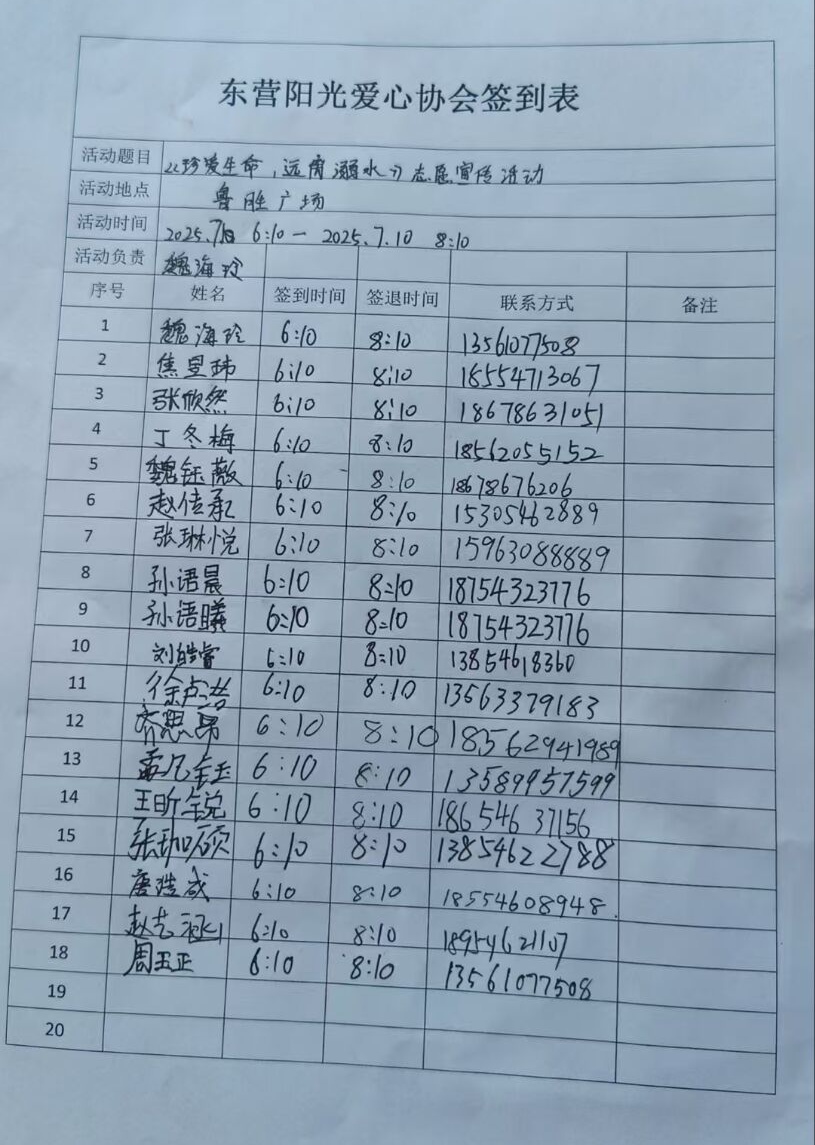 东营阳光爱心协会签到表
活动题目 《珍爱生命,远离溺水》志愿宣传活动
活动地点 鲁胜广场
活动时间 2025.7.10 6:10 — 2025.7.10 8:10
活动负责 魏海玲
序号 姓名 签到时间 签退时间 联系方式 备注
1 魏海玲 6:10 8:10 13561077508
2 焦昱玮 6:10 8:10 18554713067
3 张欣然 6:10 8:10 18678631051
4 丁冬梅 6:10 8:10 18562055152
5 魏钰薇 6:10 8:10 18678676206
6 赵传承 6:10 8:10 15305462889
7 张琳悦 6:10 8:10 15963088889
8 孙语晨 6:10 8:10 18754323776
9 孙语曦 6:10 8:10 18754323776
10 刘皓睿 6:10 8:10 13854618360
11 6:10 8:10 13563379183
12 齐思昂 6:10 8:10 18562941989
13 孟凡钰 6:10 8:10 13589957599
14 王昕锐 6:10 8:10 18654637156
15 张珈硕 6:10 8:10 13854622788
16 唐浩成 6:10 8:10 18554608948
17 赵艺涵 6:10 8:10 18954621107
18 周玉正 6:10 8:10 13561077508
19
20